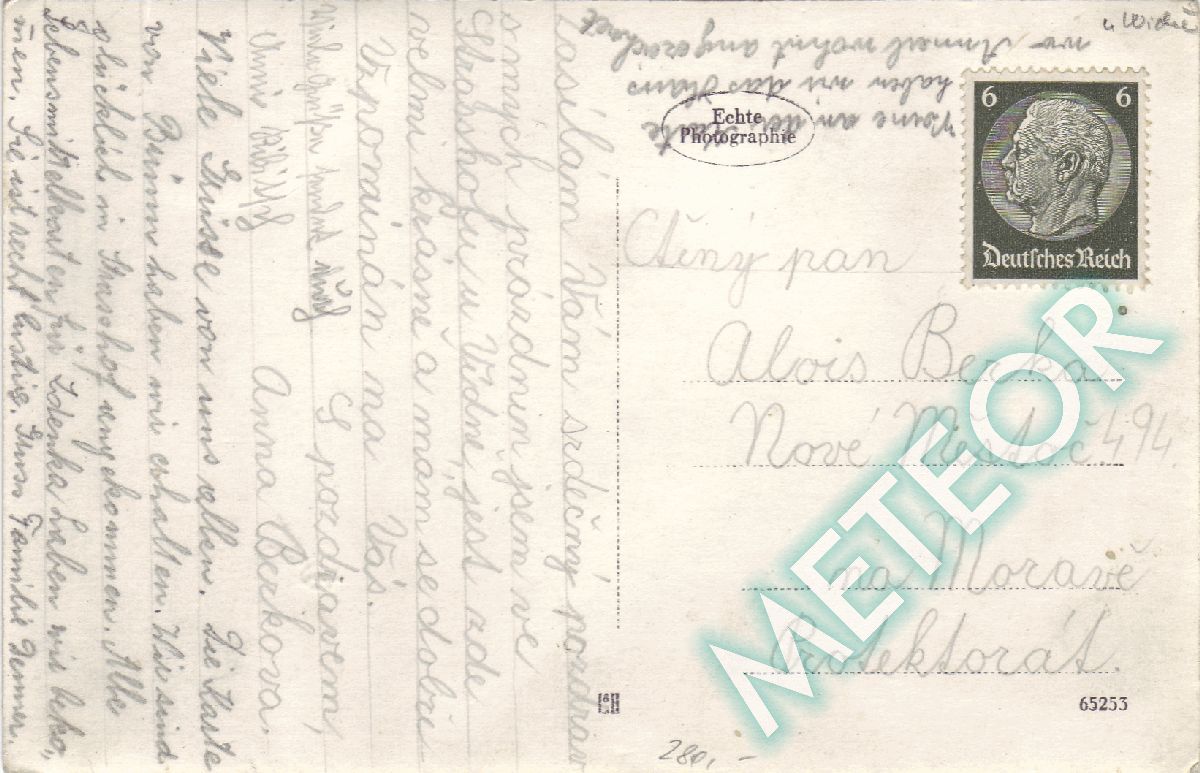 Zasílám Vám srdečný pozdrav
s mých prázdnin jsem ve
Štrasshofu u Vídně, jest zde
velmi krásně a mám se dobře
Vzpomínám na Vás.
S pozdravem,
Anna Berkova.
Viele Grüsse von uns allen. Die Karte
von Brünn haben wir erhalten. Wir sind
glücklich in Strasshof angekommen. Alle
Lebensmittelkarten für Zdenka haben wir bekom,
men. Sie ist recht lustig. Fam. Familie
haben wir das Haus
wo Annerl wohnt angezeichnet
Echte
Photographie
6 6
Deutsches Reich
Ctěný pan
Alois Berka
Nové Město č. 494.
na Moravě
Protektorát.
65253
280,-
METEOR